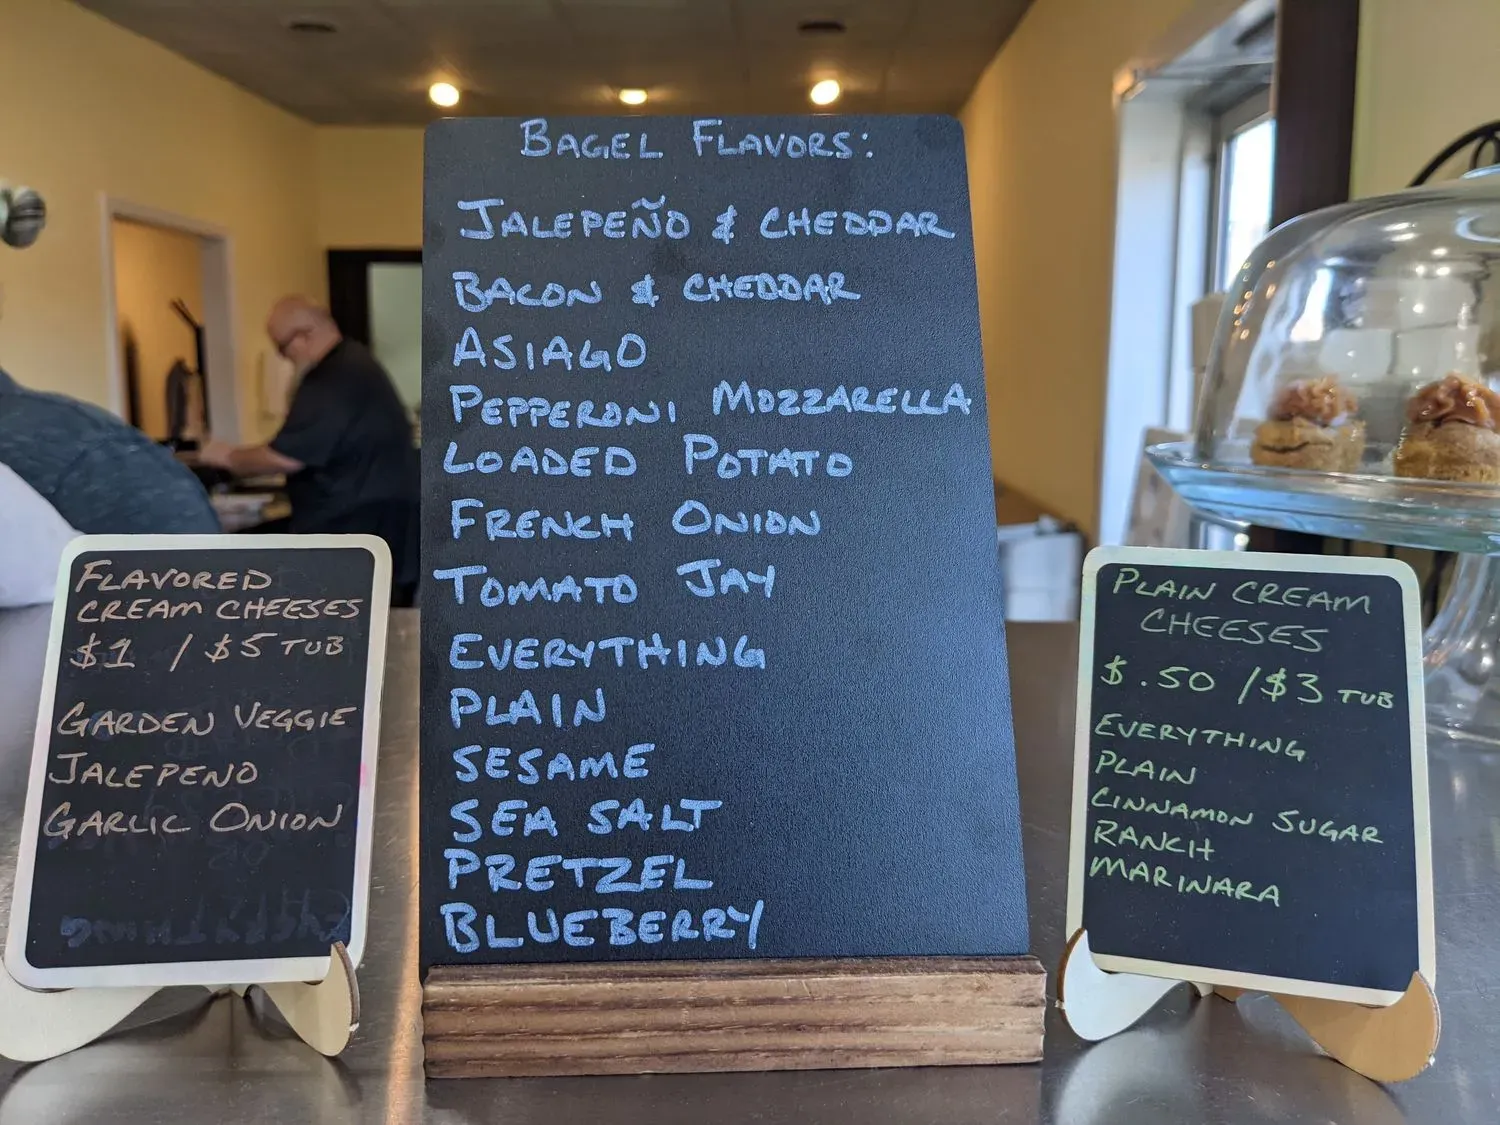 BAGEL FLAVORS:
JALEPEÑO & CHEDDAR
BACON & CHEDDAR
ASIAGO
PEPPERONI MOZZARELLA
LOADED POTATO
FRENCH ONION
TOMATO JAY
EVERYTHING
PLAIN
SESAME
SEA SALT
PRETZEL
BLUEBERRY
FLAVORED
CREAM CHEESES
$1 / $5 TUB
GARDEN VEGGIE
JALEPENO
GARLIC ONION
PLAIN CREAM
CHEESES
$.50 / $3 TUB
EVERYTHING
PLAIN
CINNAMON SUGAR
RANCH
MARINARA